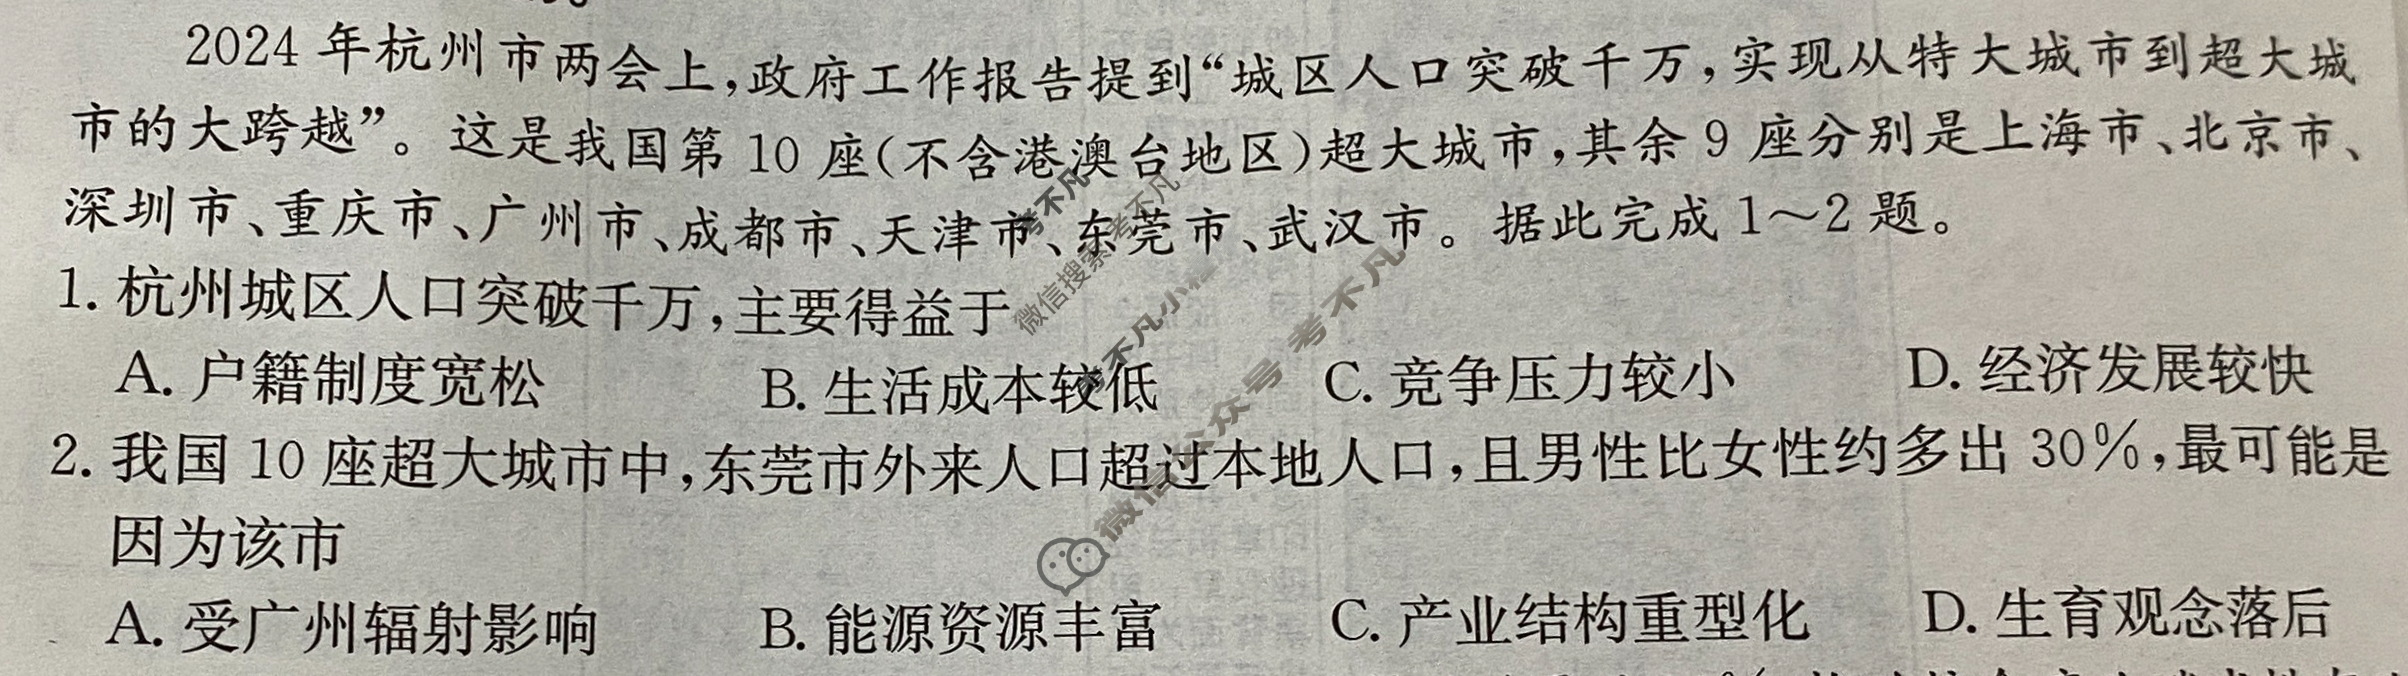 2024年杭州市两会上,政府工作报告提到“城区人口突破千万,实现从特大城市到超大城
市的大跨越”。这是我国第10座(不含港澳台地区)超大城市,其余9座分别是上海市、北京市、
深圳市、重庆市、广州市、成都市、天津市、东莞市、武汉市。据此完成1～2题。
1. 杭州城区人口突破千万,主要得益于
A. 户籍制度宽松 B. 生活成本较低 C. 竞争压力较小 D. 经济发展较快
2. 我国10座超大城市中,东莞市外来人口超过本地人口,且男性比女性约多出30%,最可能是
因为该市
A. 受广州辐射影响 B. 能源资源丰富 C. 产业结构重型化 D. 生育观念落后
考不凡
微信搜索 考不凡
考不凡小程
微信公众号 考不凡